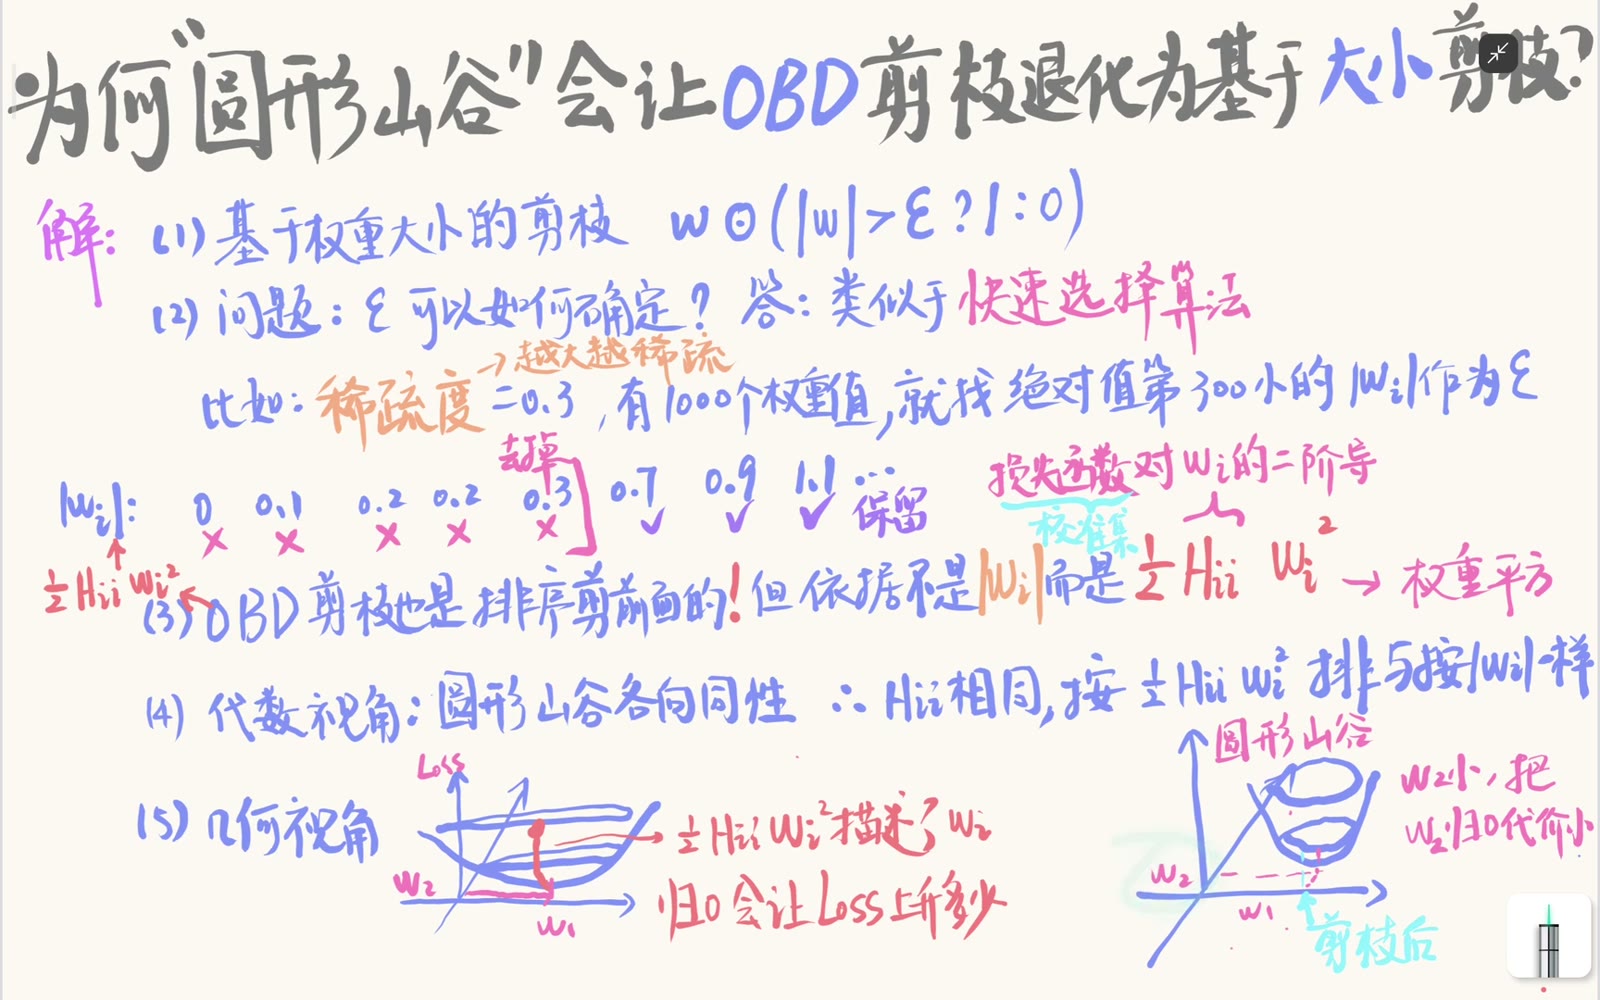 为何"圆形山谷"会让OBD剪枝退化为基于大小剪枝?
解: (1) 基于权重大小的剪枝 w⊙(|w|>ε?1:0)
(2) 问题: ε可以如何确定? 答: 类似于快速选择算法
→越大越稀疏
比如: 稀疏度=0.3, 有1000个权重值, 就找绝对值第300小的|Wi|作为ε
去掉
|Wi|: 0 0.1 0.2 0.2 0.3 0.7 0.9 1.1 ... 保留
损失函数对Wi的二阶导
校准集
½Hii Wi²
(3) OBD剪枝也是排序剪前面的! 但依据不是|Wi|而是½Hii Wi² → 权重平方
(4) 代数视角: 圆形山谷各向同性 ∴ Hii相同, 按½Hii Wi²排与按|Wi|一样
(5) 几何视角
Loss
W2
W1
½Hii Wi²描述了Wi
归0会让Loss上升多少
圆形山谷
W2小, 把
W2归0代价小
W2
W1
剪枝后